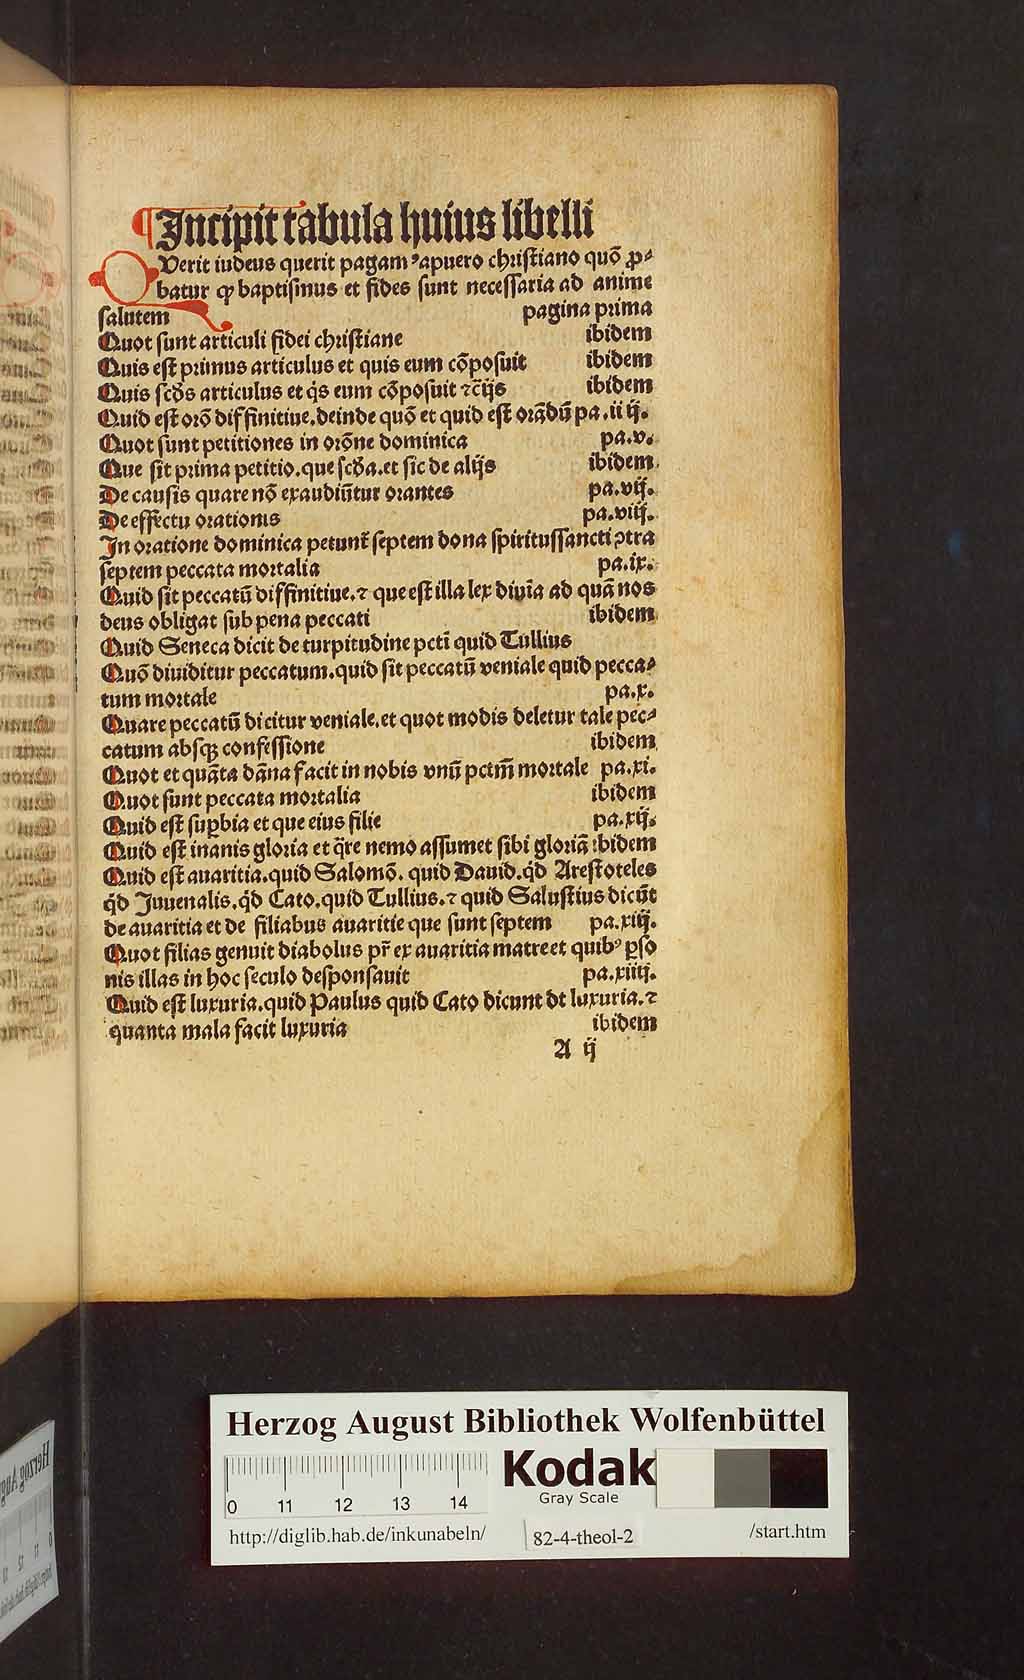 ¶Incipit tabula huius libelli
QVerit iudeus querit pagamꝰ apuero christiano quō ꝓ⸗
batur ꝙ baptismus et fides sunt necessaria ad anime
salutem pagina prima
Quot sunt articuli fidei christiane ibidem
Quis est primus articulus et quis eum cōposuit ibidem
Quis scd's articulus et q̇s eum cōposuit ⁊c̄ijs ibidem
Quid est orō diffinitiue.deinde quō et quid est orādū pa.iiij.
Quot sunt petitiones in orōne dominica pa.v.
Que sit prima petitio.que scd'a.et sic de alijs ibidem
De causis quare nō exaudiūtur orantes pa.vij.
De effectu orationis pa.viij.
In oratione dominica petunt᷑ septem dona spiritussancti ꝯtra
septem peccata mortalia pa.ix.
Quid sit peccatū diffinitiue.⁊ que est illa lex diuīa ad quā nos
deus obligat sub pena peccati ibidem
Quid Seneca dicit de turpitudine pcti̅ quid Tullius
Quō diuiditur peccatum.quid sit peccatū veniale quid pecca⸗
tum mortale pa.x.
Quare peccatū dicitur veniale.et quot modis deletur tale pec⸗
catum absqꝫ confessione ibidem
Quot et quāta dāna facit in nobis vnū pctm̅ mortale pa.xi.
Quot sunt peccata mortalia ibidem
Quid est suꝑbia et que eius filie pa.xij.
Quid est inanis gloria et q̄re nemo assumet sibi gloriā ibidem
Quid est auaritia.quid Salomō. quid Dauid.qd̓ Arestoteles
qd̓ Iuuenalis.qd̓ Cato.quid Tullius.⁊ quid Salustius dicūt
de auaritia et de filiabus auaritie que sunt septem pa.xiij.
Quot filias genuit diabolus pr̄ ex auaritia matre et quibꝰ ꝑso
nis illas in hoc seculo desponsauit pa.xiiij.
Quid est luxuria.quid Paulus quid Cato dicunt dt luxuria.⁊
quanta mala facit luxuria ibidem
A ij
Herzog August Bibliothek Wolfenbüttel
0 11 12 13 14
Kodak
Gray Scale
http://diglib.hab.de/inkunabeln/ 82-4-theol-2 /start.htm